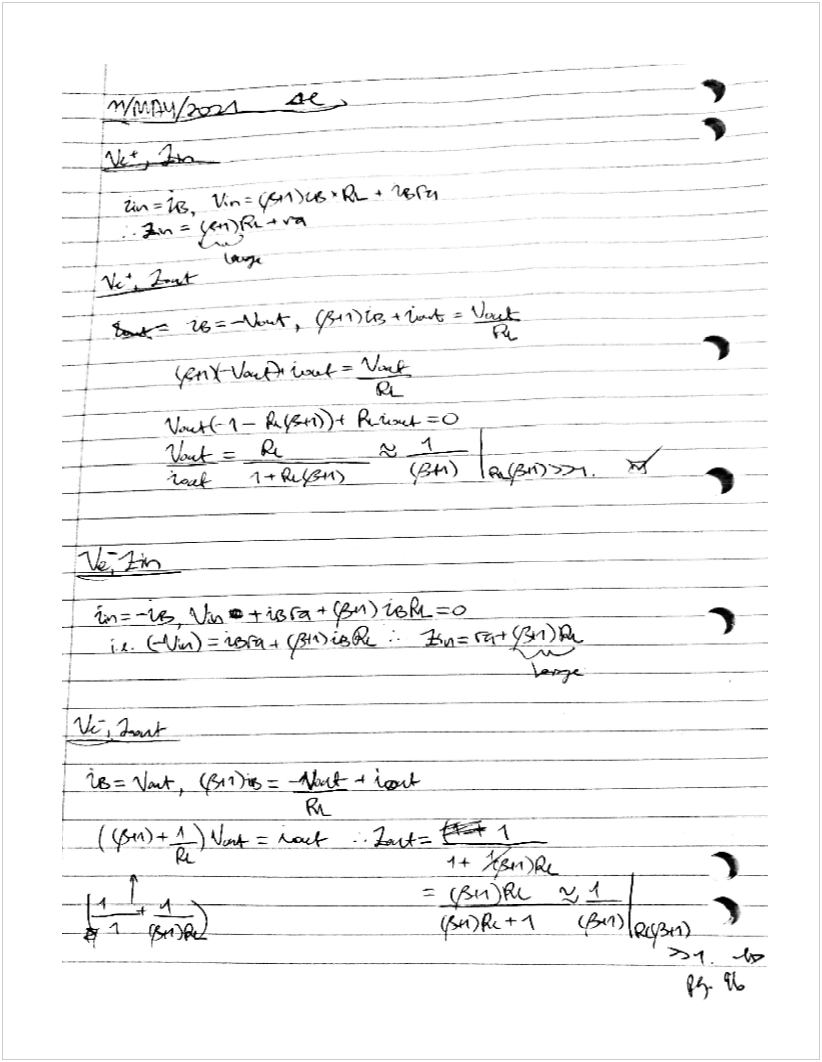 11/MAY/2021
Vc⁺, Zin
iin = iB, Vin = (β+1)iB × RL + iBra
∴ Zin = (β+1)RL + ra
large
Vc⁺, Zout
iB = -Vout, (β+1)iB + iout = Vout/RL
(β+1)(-Vout) + iout = Vout/RL
Vout(-1 - RL(β+1)) + RL iout = 0
Vout/iout = RL/(1+RL(β+1)) ≈ 1/(β+1) | RL(β+1) >> 1.
Vc⁻, Zin
iin = -iB, Vin + iBra + (β+1)iBRL = 0
i.e. (-Vin) = iBra + (β+1)iBRL ∴ Zin = ra + (β+1)RL
large
Vc⁻, Zout
iB = Vout, (β+1)iB = -Vout/RL + iout
((β+1) + 1/RL)Vout = iout ∴ Zout = 1/(1 + 1/(β+1)RL)
(1/1 + 1/(β+1)RL)
= (β+1)RL/((β+1)RL + 1) ≈ 1/(β+1) | RL(β+1)
>> 1.
pg. 96